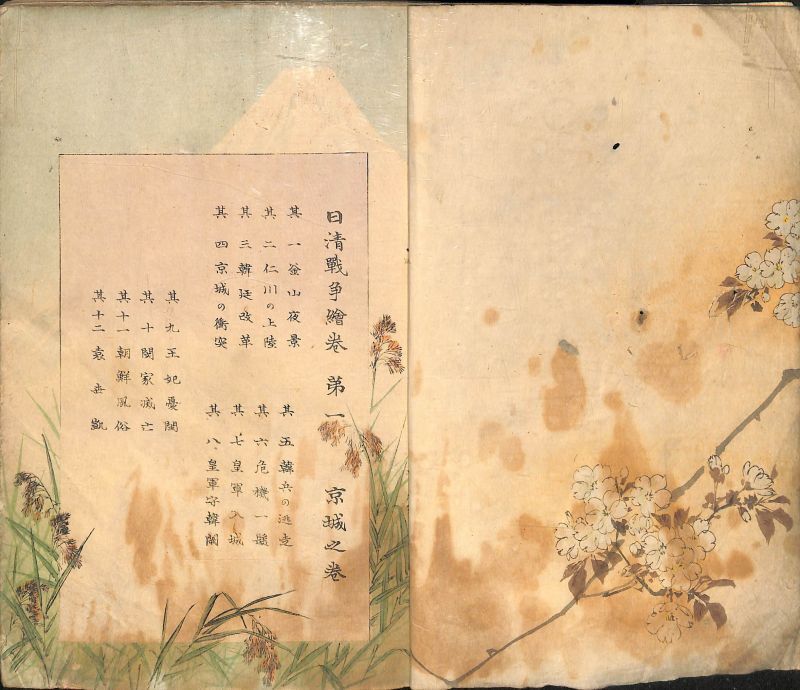 日清戰争繪卷 第一 京城之卷
其一 釜山夜景
其二 仁川の上陸
其三 韓廷改革
其四 京城の衝突
其五 韓兵の逃走
其六 危機一髪
其七 皇軍入城
其八 皇軍守韓闕
其九 王妃憂悶
其十 閔家滅亡
其十一 朝鮮風俗
其十二 袁世凱